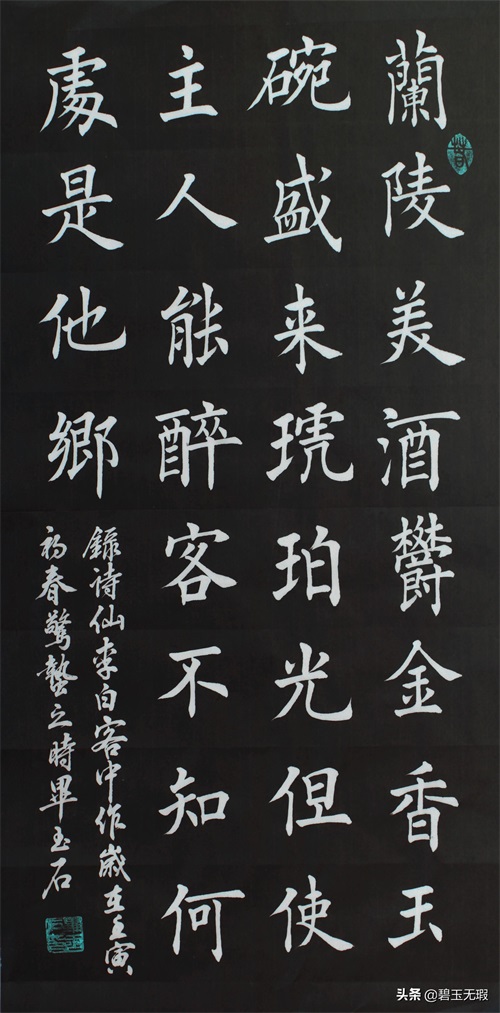 蘭陵美酒欝金香玉
碗盛来琥珀光但使
主人能醉客不知何
處是他鄉
錄诗仙李白客中作歲在壬寅
初春驚蟄之時畢玉石
头条 @碧玉无瑕